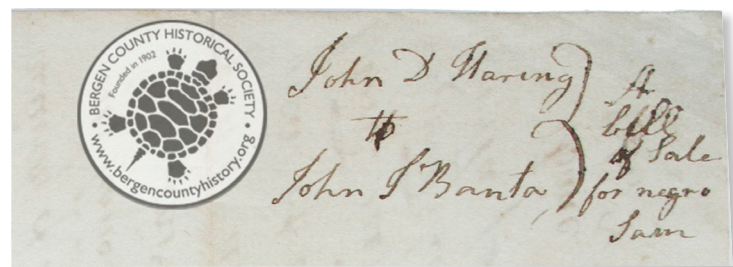 BERGEN COUNTY HISTORICAL SOCIETY
Founded in 1902
www.bergencountyhistory.org
John D Haring
to
John J Banta
A
bill
of Sale
for negro
Sam